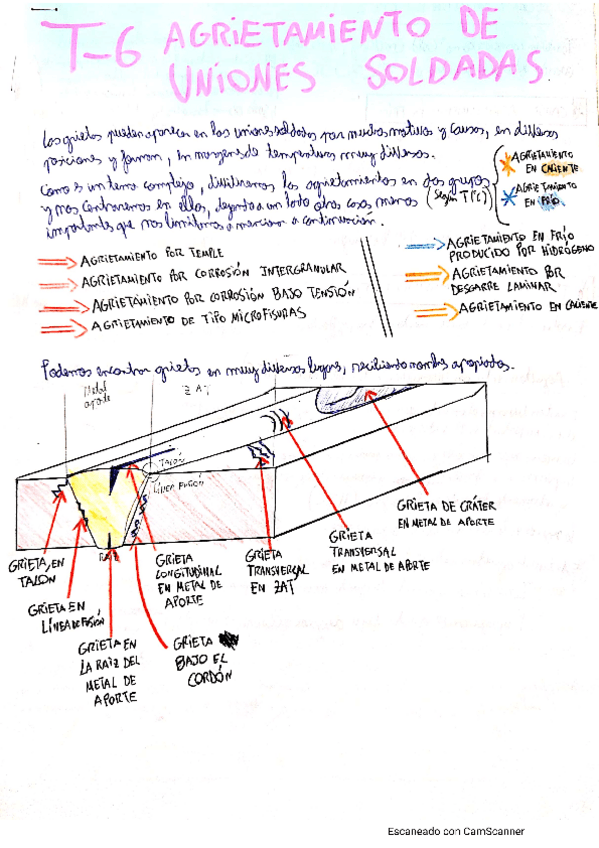 T-6 AGRIETAMIENTO DE
UNIONES SOLDADAS
Las grietas pueden aparecer en las uniones soldadas por muchos motivos y causas, en diversas
posiciones y forman, en margenes de temperatura muy diversos.
Como es un tema complejo, dividiremos los agrietamientos en dos grupos
y nos centraremos en ellos, dejando a un lado otros casos menos
(según TPC)
importantes que nos limitamos a mencionar a continuación.
AGRIETAMIENTO
EN CALIENTE
AGRIETAMIENTO
EN FRÍO
AGRIETAMIENTO POR TEMPLE
AGRIETAMIENTO POR CORROSIÓN INTERGRANULAR
AGRIETAMIENTO POR CORROSIÓN BAJO TENSIÓN
AGRIETAMIENTO DE TIPO MICROFISURAS
AGRIETAMIENTO EN FRÍO
PRODUCIDO POR HIDRÓGENO
AGRIETAMIENTO POR
DESGARRE LAMINAR
AGRIETAMIENTO EN CALIENTE
Podemos encontrar grietas en muy diversos lugares, recibiendo nombres apropiados.
Metal
aporte
ZAT
TALÓN
LÍNEA FUSIÓN
RAÍZ
GRIETA EN
TALÓN
GRIETA EN
LÍNEA DE FUSIÓN
GRIETA EN
LA RAÍZ DEL
METAL DE
APORTE
GRIETA
LONGITUDINAL
EN METAL DE
APORTE
GRIETA
BAJO EL
CORDÓN
GRIETA
TRANSVERSAL
EN ZAT
GRIETA
TRANSVERSAL
EN METAL DE APORTE
GRIETA DE CRÁTER
EN METAL DE APORTE
Escaneado con CamScanner